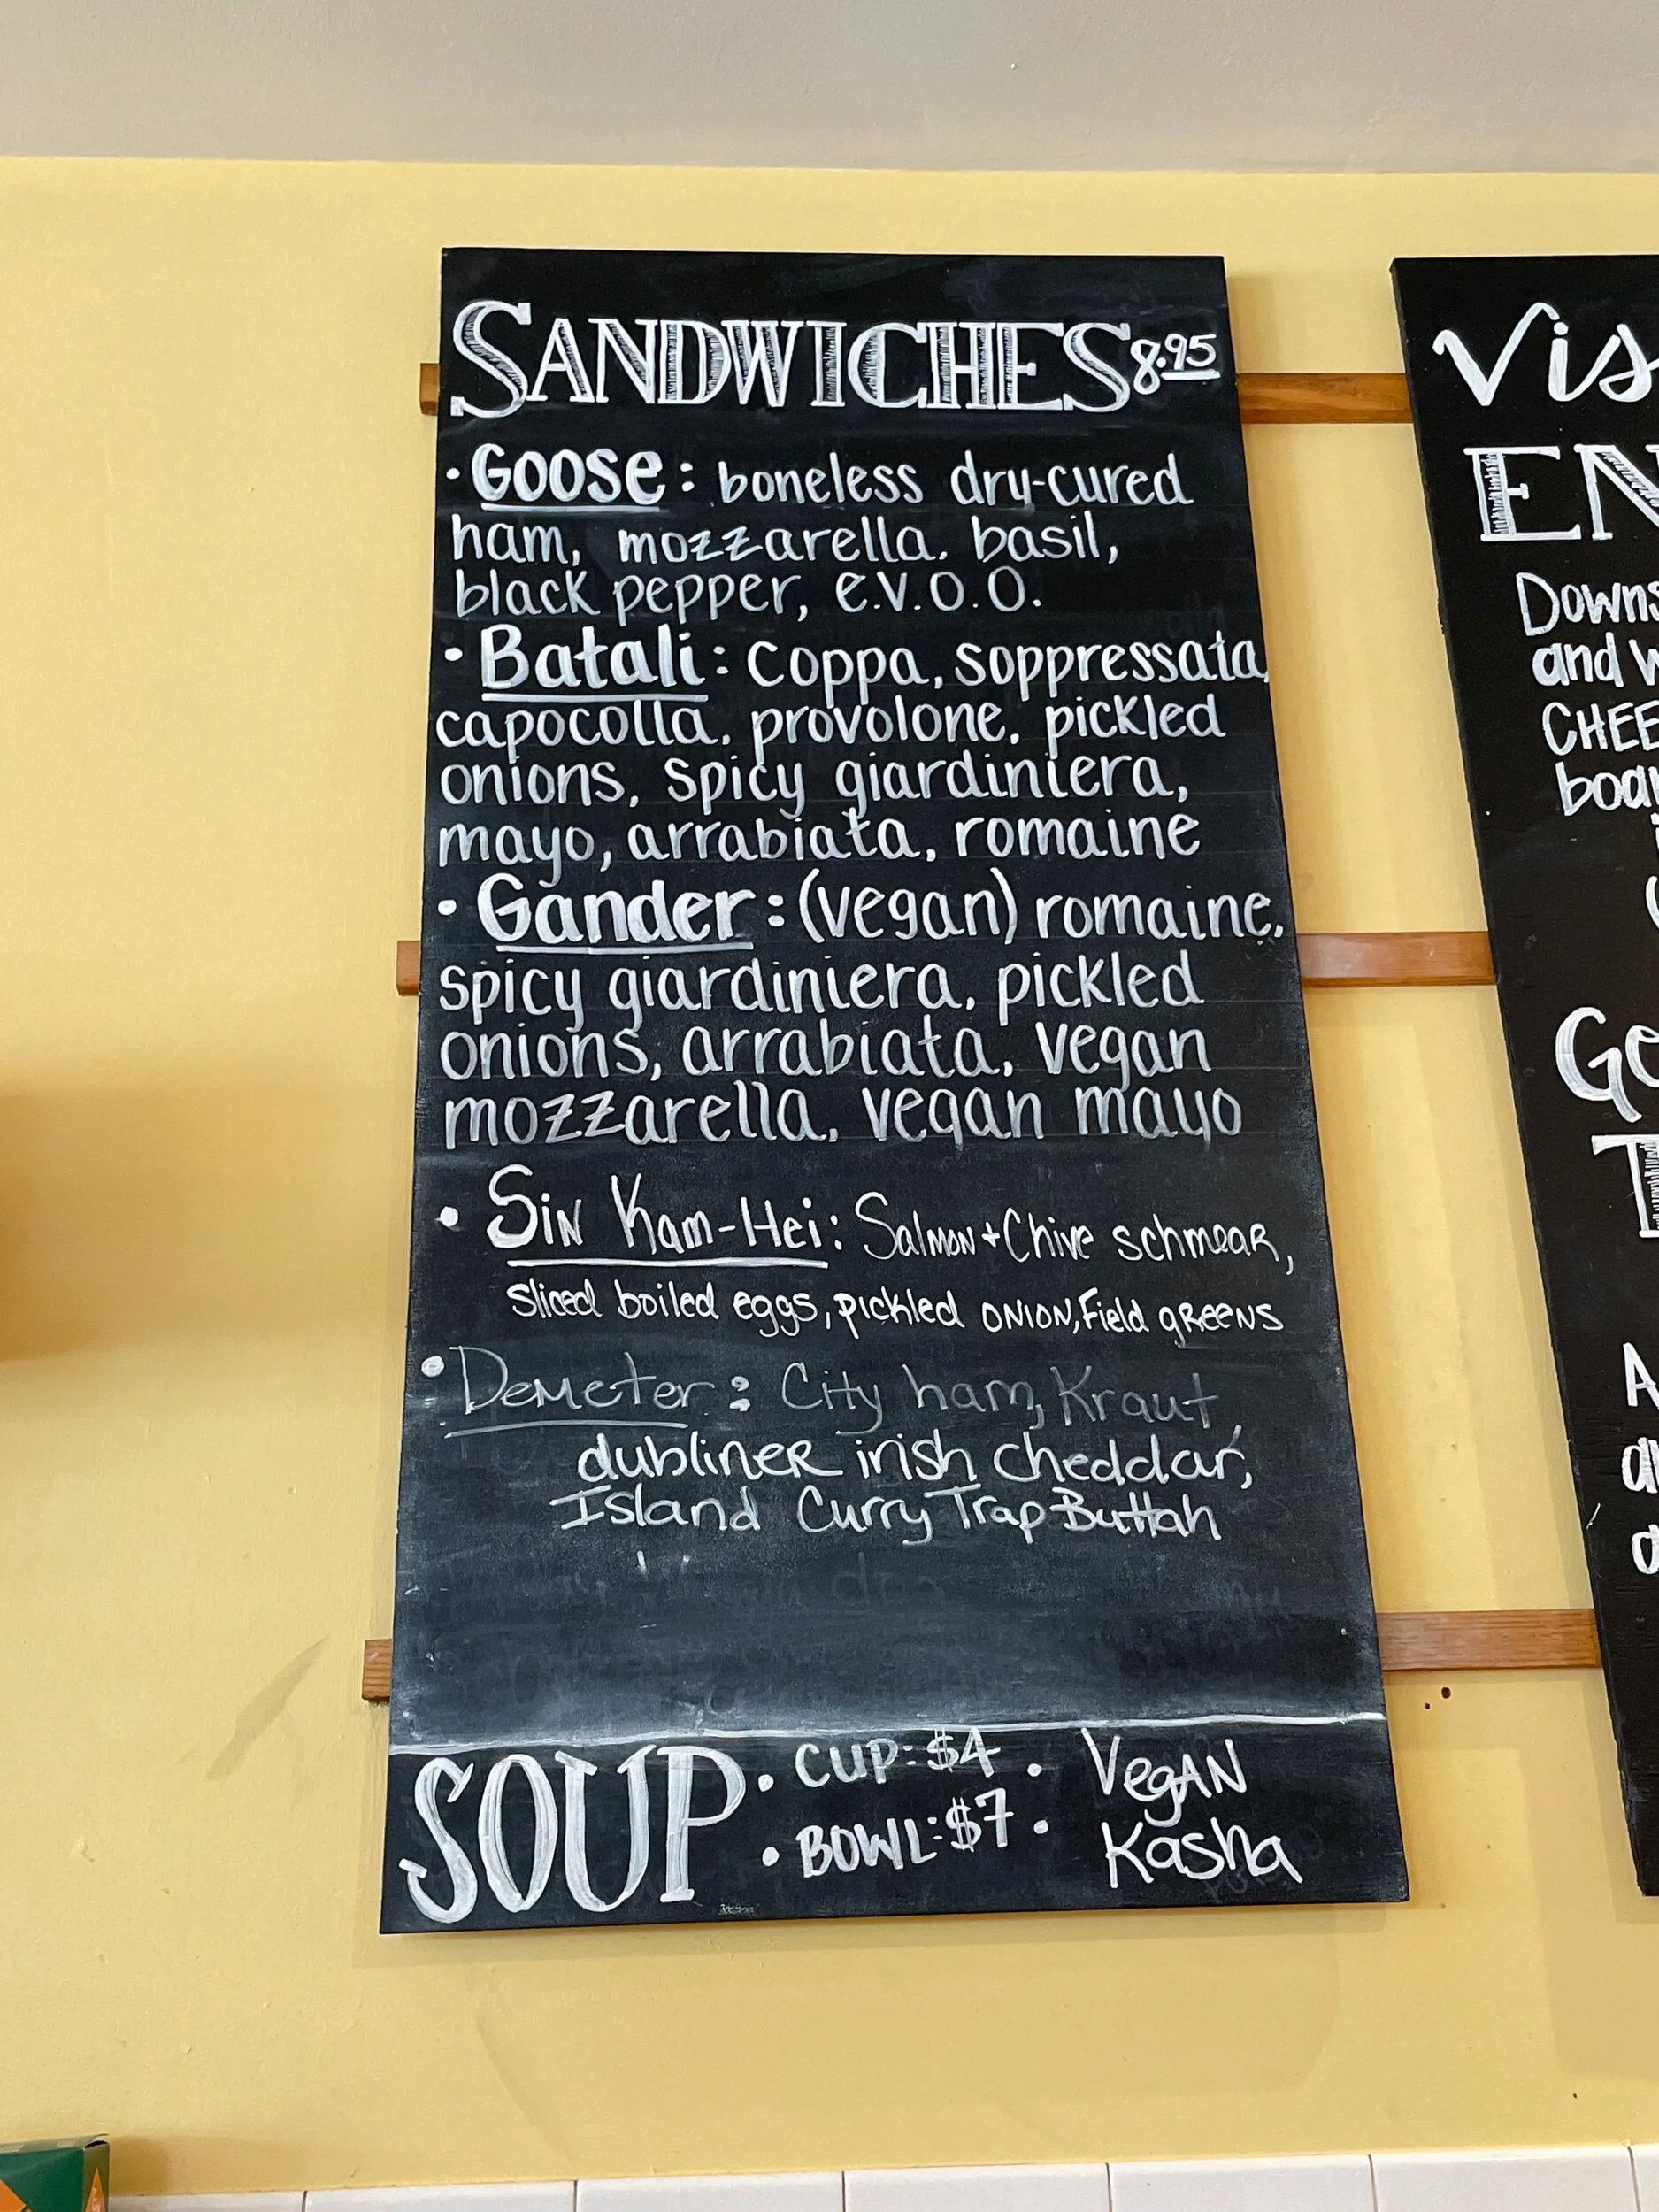 SANDWICHES 8.95
• Goose: boneless dry-cured
ham, mozzarella, basil,
black pepper, e.v.o.o.
• Batali: coppa, soppressata,
capocolla, provolone, pickled
onions, spicy giardiniera,
mayo, arrabiata, romaine
• Gander: (vegan) romaine,
spicy giardiniera, pickled
onions, arrabiata, vegan
mozzarella, vegan mayo
• Sin Kam-Hei: Salmon + Chive schmear,
sliced boiled eggs, pickled onion, Field greens
• Demeter: City ham, Kraut,
dubliner irish cheddar,
Island Curry Trap Buttah
SOUP
• CUP: $4 •
• BOWL: $7 •
Vegan
Kasha
Vis
EN
Downs
and w
CHEE
boar
Ge
T
A